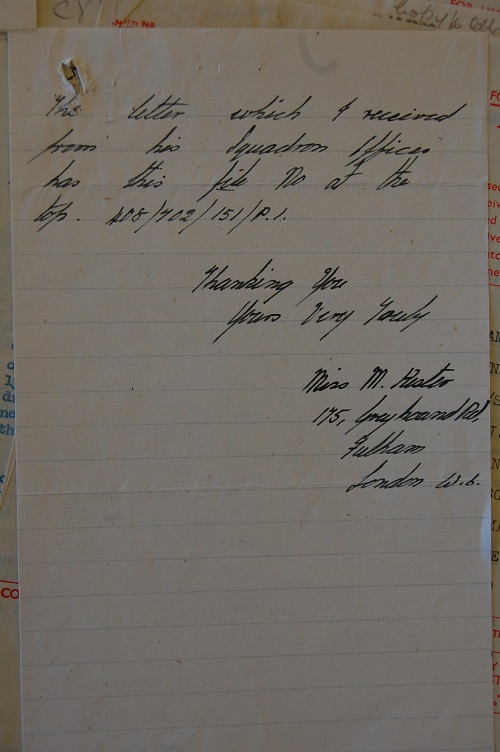 The letter which I received
from his Squadron Offices
has this file No at the
top. 408/702/151/P.1.
Thanking You
Yours Very Truly
Miss M.
175, Greyhound Rd,
Fulham
London W.6.